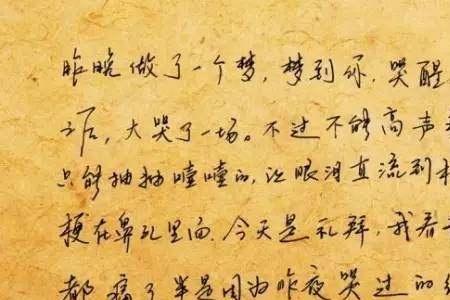 昨晚做了一个梦，梦到你，哭醒
之后，大哭了一场。不过不能高声
只能抽抽噎噎的，让眼泪直流到
梗在鼻孔里面。今天是礼拜，我看
都痛了 是因为昨夜哭过的